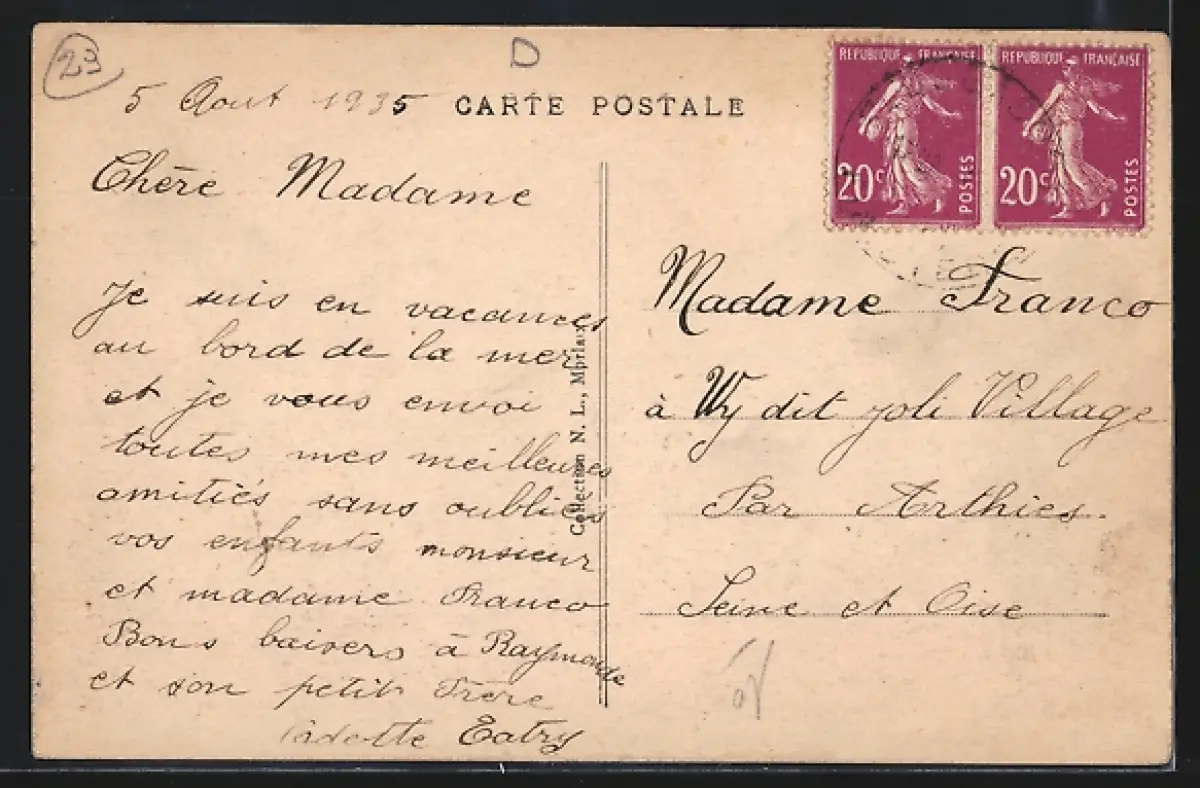 23
D
5 Aout 1935
CARTE POSTALE
REPUBLIQUE FRANÇAISE
20c POSTES
REPUBLIQUE FRANÇAISE
20c POSTES
Chère Madame
Je suis en vacances
au bord de la mer
et je vous envoi
toutes mes meilleures
amitiés sans oublier
vos enfants monsieur
et madame Franco
Bons baisers à Raymonde
et son petit Frère
Collection N. L., Morlaix
Madame Franco
à Wy dit joli Village
Par Arthies.
Seine et Oise